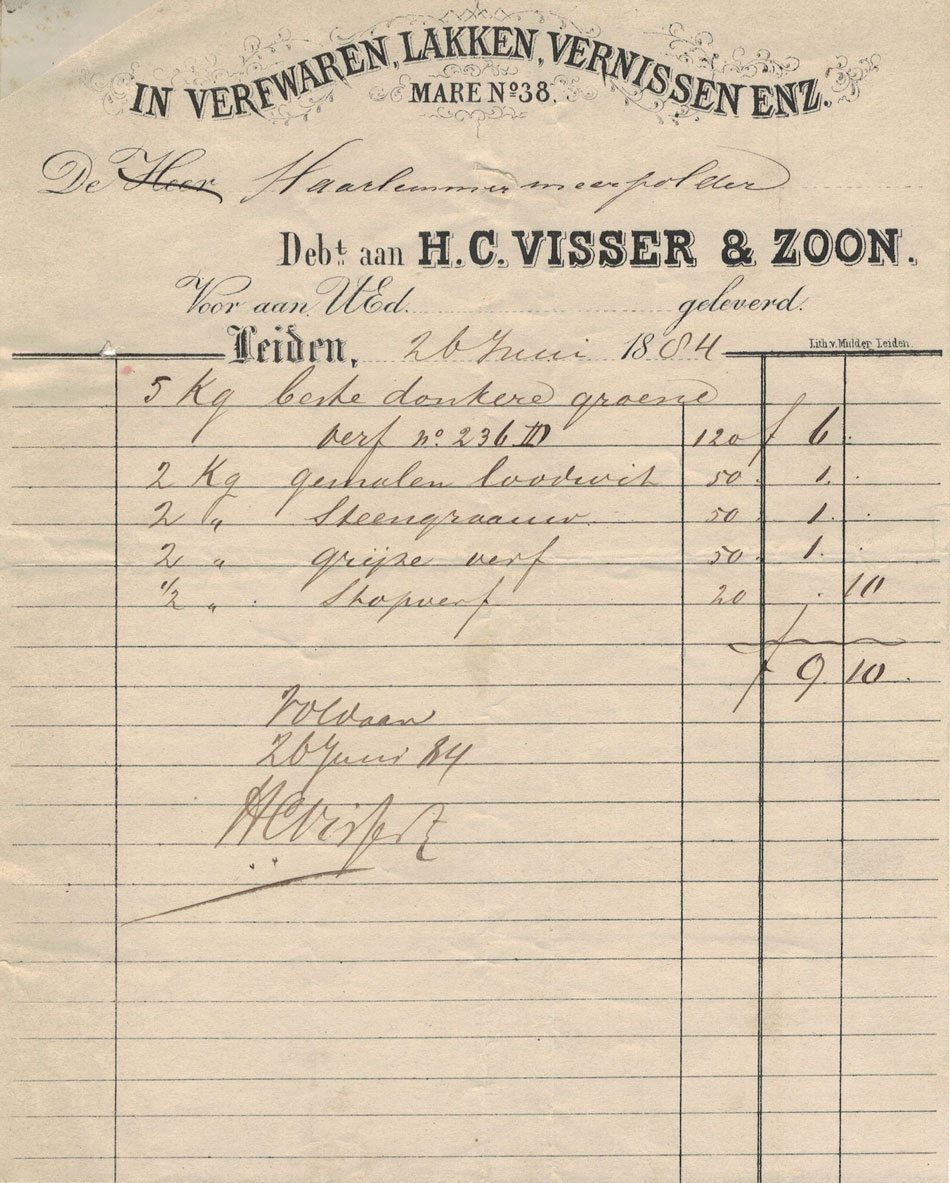 IN VERFWAREN, LAKKEN, VERNISSEN ENZ.
MARE No 38.
De Heer Haarlemmermeerpolder
Debt. aan H. C. VISSER & ZOON.
Voor aan UEd. geleverd.
Leiden, 26 Juni 1884
Lith. v. Mulder Leiden.
5 Kg beste donkere groene
verf no. 236 120 f 6 .
2 Kg gemalen loodwit 50 . 1 .
2 " Steengraauw 50 . 1 .
2 " grijze verf 50 . 1 .
1/2 " Stopverf 20 . 10
f 9 10
Voldaan
26 Juni 84
HC Visser Z